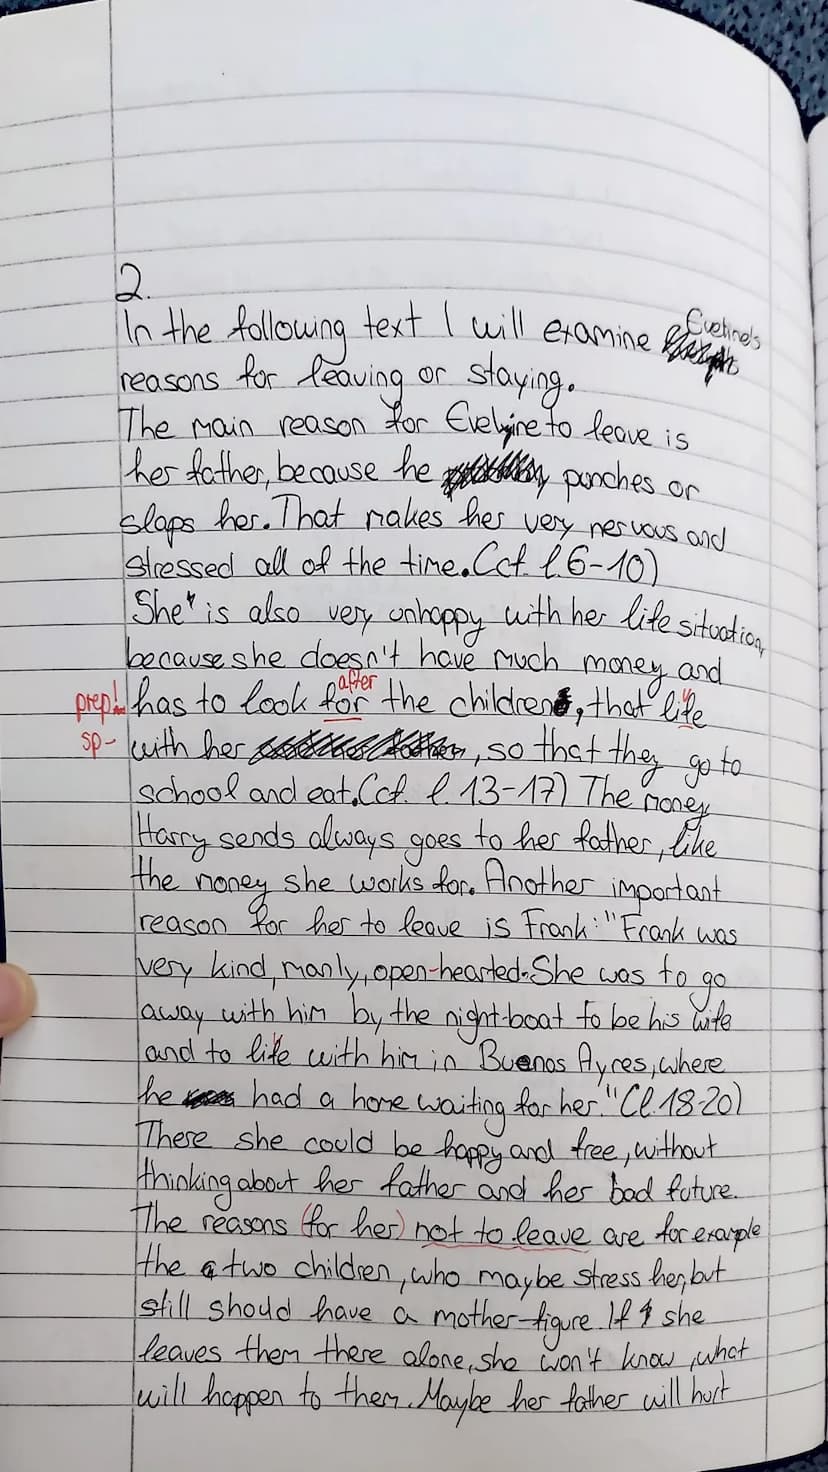 2.
In the following text I will examine Eveline's
reasons for leaving or staying.
The main reason for Eveline to leave is
her father, because he punches or
slaps her. That makes her very nervous and
stressed all of the time. (cf. l. 6-10)
She is also very unhappy with her life situation,
because she doesn't have much money and
after
prep! has to look for the children, that life
sp- with her, so that they go to
school and eat. (cf. l. 13-17) The money
Harry sends always goes to her father, like
the money she works for. Another important
reason for her to leave is Frank: "Frank was
very kind, manly, open-hearted. She was to go
away with him by the night-boat to be his wife
and to life with him in Buenos Ayres, where
he had a home waiting for her." (l. 18-20)
There she could be happy and free, without
thinking about her father and her bad future.
The reasons (for her) not to leave are for example
the two children, who maybe stress her, but
still should have a mother-figure. If she
leaves them there alone, she won't know, what
will happen to them. Maybe her father will hurt